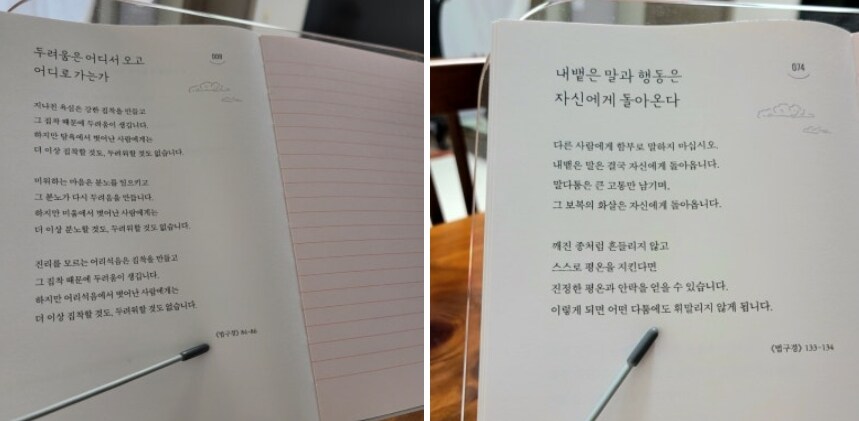 두려움은 어디서 오고
어디로 가는가
008
지나친 욕심은 강한 집착을 만들고
그 집착 때문에 두려움이 생깁니다.
하지만 탐욕에서 벗어난 사람에게는
더 이상 집착할 것도, 두려워할 것도 없습니다.
미워하는 마음은 분노를 일으키고
그 분노가 다시 두려움을 만듭니다.
하지만 미움에서 벗어난 사람에게는
더 이상 분노할 것도, 두려워할 것도 없습니다.
진리를 모르는 어리석음은 집착을 만들고
그 집착 때문에 두려움이 생깁니다.
하지만 어리석음에서 벗어난 사람에게는
더 이상 집착할 것도, 두려워할 것도 없습니다.
《법구경》
내뱉은 말과 행동은
자신에게 돌아온다
074
다른 사람에게 함부로 말하지 마십시오.
내뱉은 말은 결국 자신에게 돌아옵니다.
말다툼은 큰 고통만 남기며,
그 보복의 화살은 자신에게 돌아옵니다.
깨진 종처럼 흔들리지 않고
스스로 평온을 지킨다면
진정한 평온과 안락을 얻을 수 있습니다.
이렇게 되면 어떤 다툼에도 휘말리지 않게 됩니다.
《법구경》 133-134